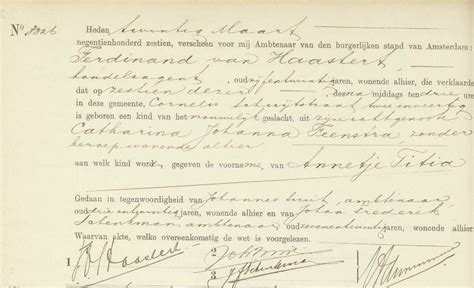 No 3326 Heden twintig Maart
negentienhonderd zestien, verscheen voor mij Ambtenaar van den burgerlijken stand van Amsterdam:
Ferdinand van Haastert,
handelsagent, oud vijfentwintig jaren, wonende alhier, die verklaarde
dat op zestien dezer des na middags ten drie ure
in deze gemeente, Cornelis
is geboren een kind van het vrouwelijk geslacht, uit zijne echtgenoote
Catharina Johanna Feenstra, zonder
beroep, wonende alhier
aan welk kind word gegeven de voorname van Annetje Titia
Gedaan in tegenwoordigheid van Johannes ambtenaar,
oud jaren, wonende alhier en van Johan Frederik
ambtenaar, oud zevenentwintig jaren, wonende alhier.
Waarvan akte, welke overeenkomstig de wet is voorgelezen.
1 Haastert 2
3